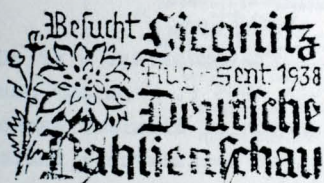 Besucht Liegnitz
Aug.-Sept 1938
Deutsche
Dahlienschau